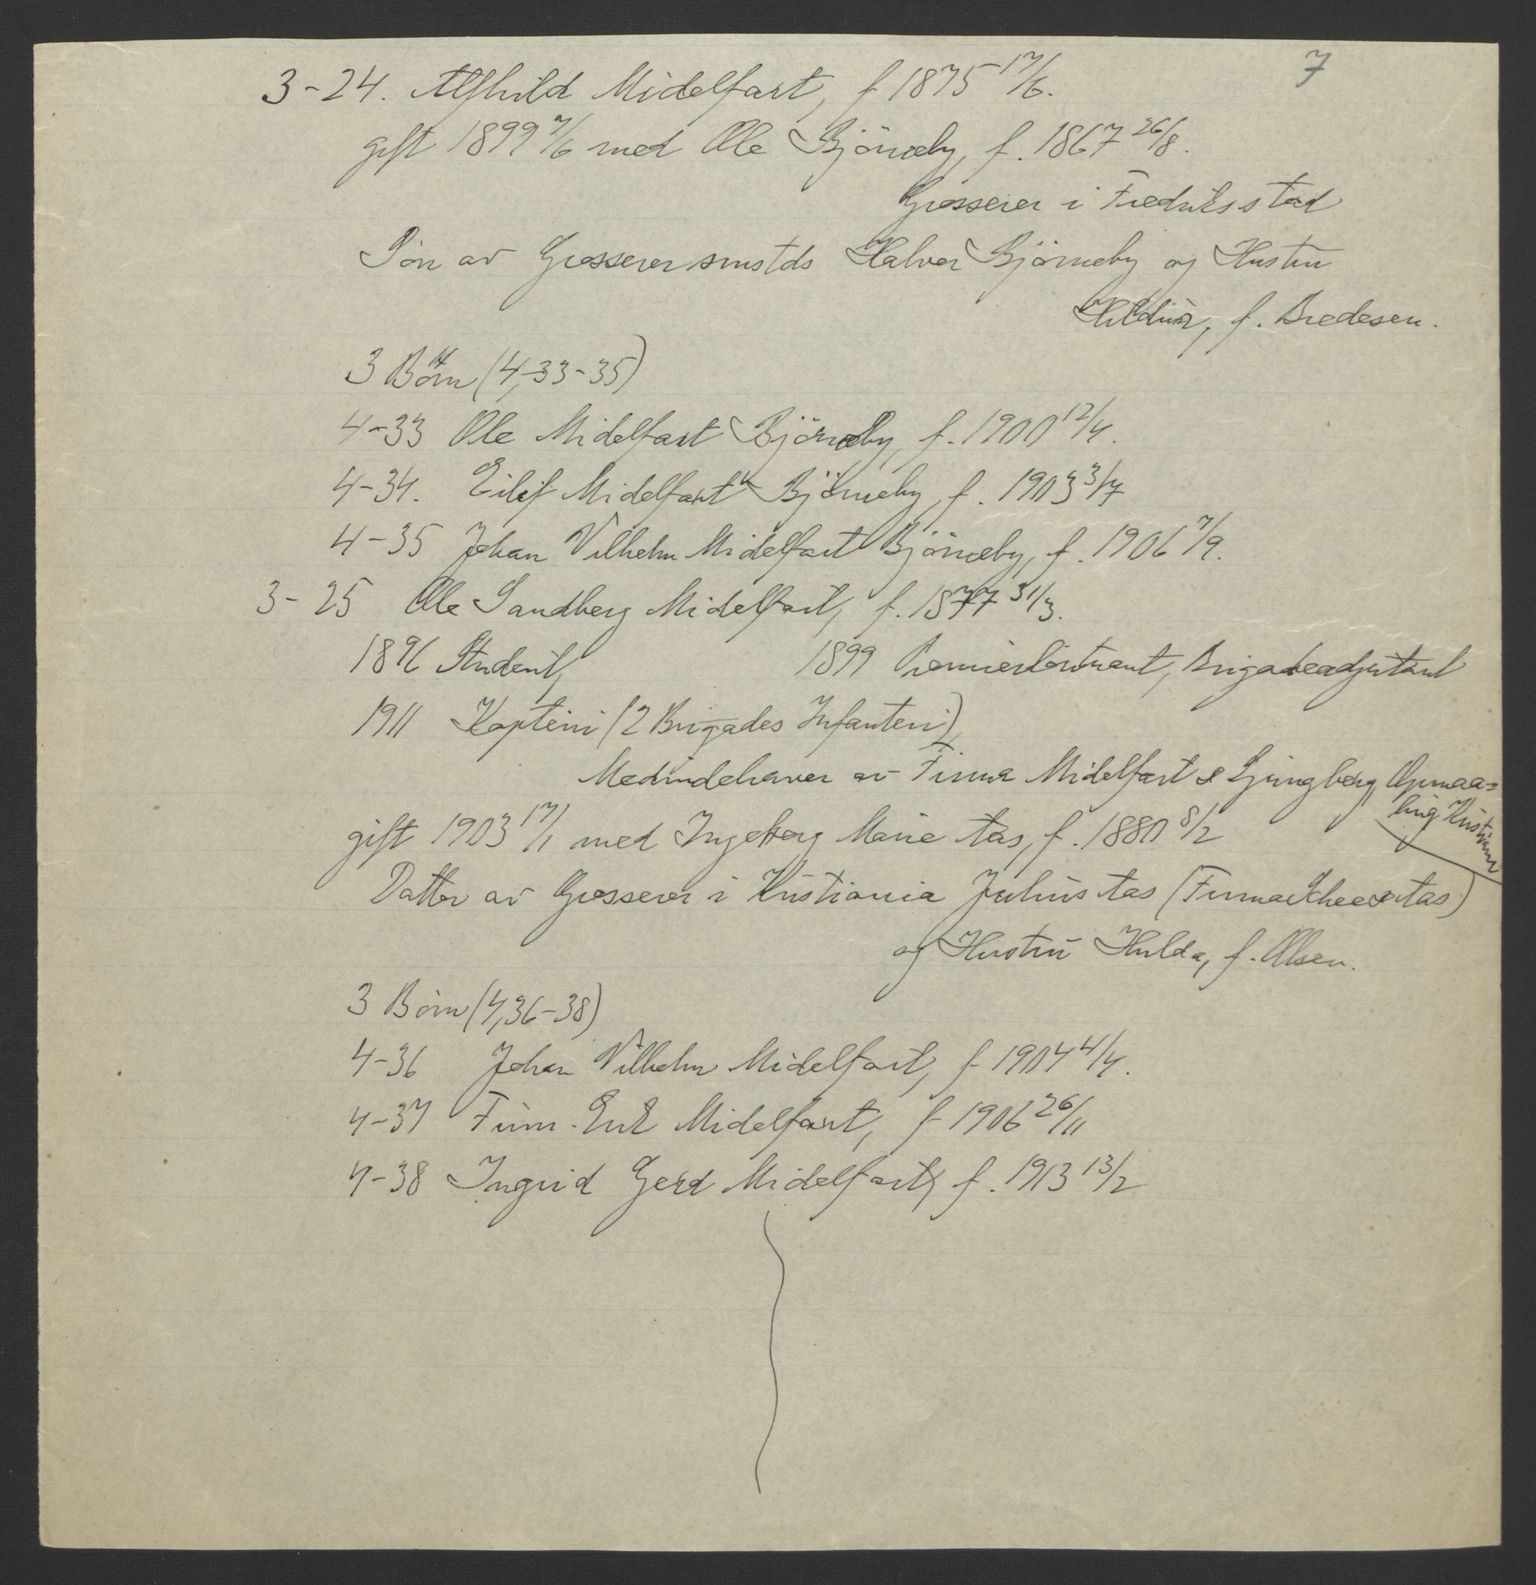 7
3-24. Alfhild Midelfart, f 1875 17/6.
gift 1899 7/6 med Ole Björneby, f. 1867 26/8.
Grosserer i Fredriksstad
Sön av Grosserer smstds Halvor Björneby og Hustru
f. Bredesen.
3 Börn (4,33-35)
4-33 Ole Midelfart Björneby, f. 1900 12/4.
4-34. Eilif Midelfart Björneby, f. 1903 3/7
4-35 Johan Vilhelm Midelfart Björneby, f. 1906 7/9.
3-25 Ole Sandberg Midelfart, f. 1877 31/3.
1896 Student, 1899 Premierlöitnant, Brigadeadjutant
1911 Kaptein (2 Brigades Infanteri),
Medindehaver av Firma Midelfart & Ljungberg, Opmaa=
ling Kristiania
gift 1903 17/1 med Ingeborg Marie Aas, f. 1880 8/2
Datter av Grosserer i Kristiania Julius Aas (Firma Scheer & Aas)
og Hustru Hulda, f. Olsen.
3 Börn (4,36-38)
4-36 Johan Vilhelm Midelfart, f 1904 4/4.
4-37 Finn Erik Midelfart, f 1906 26/11
4-38 Ingrid Gerd Midelfart, f. 1913 13/2